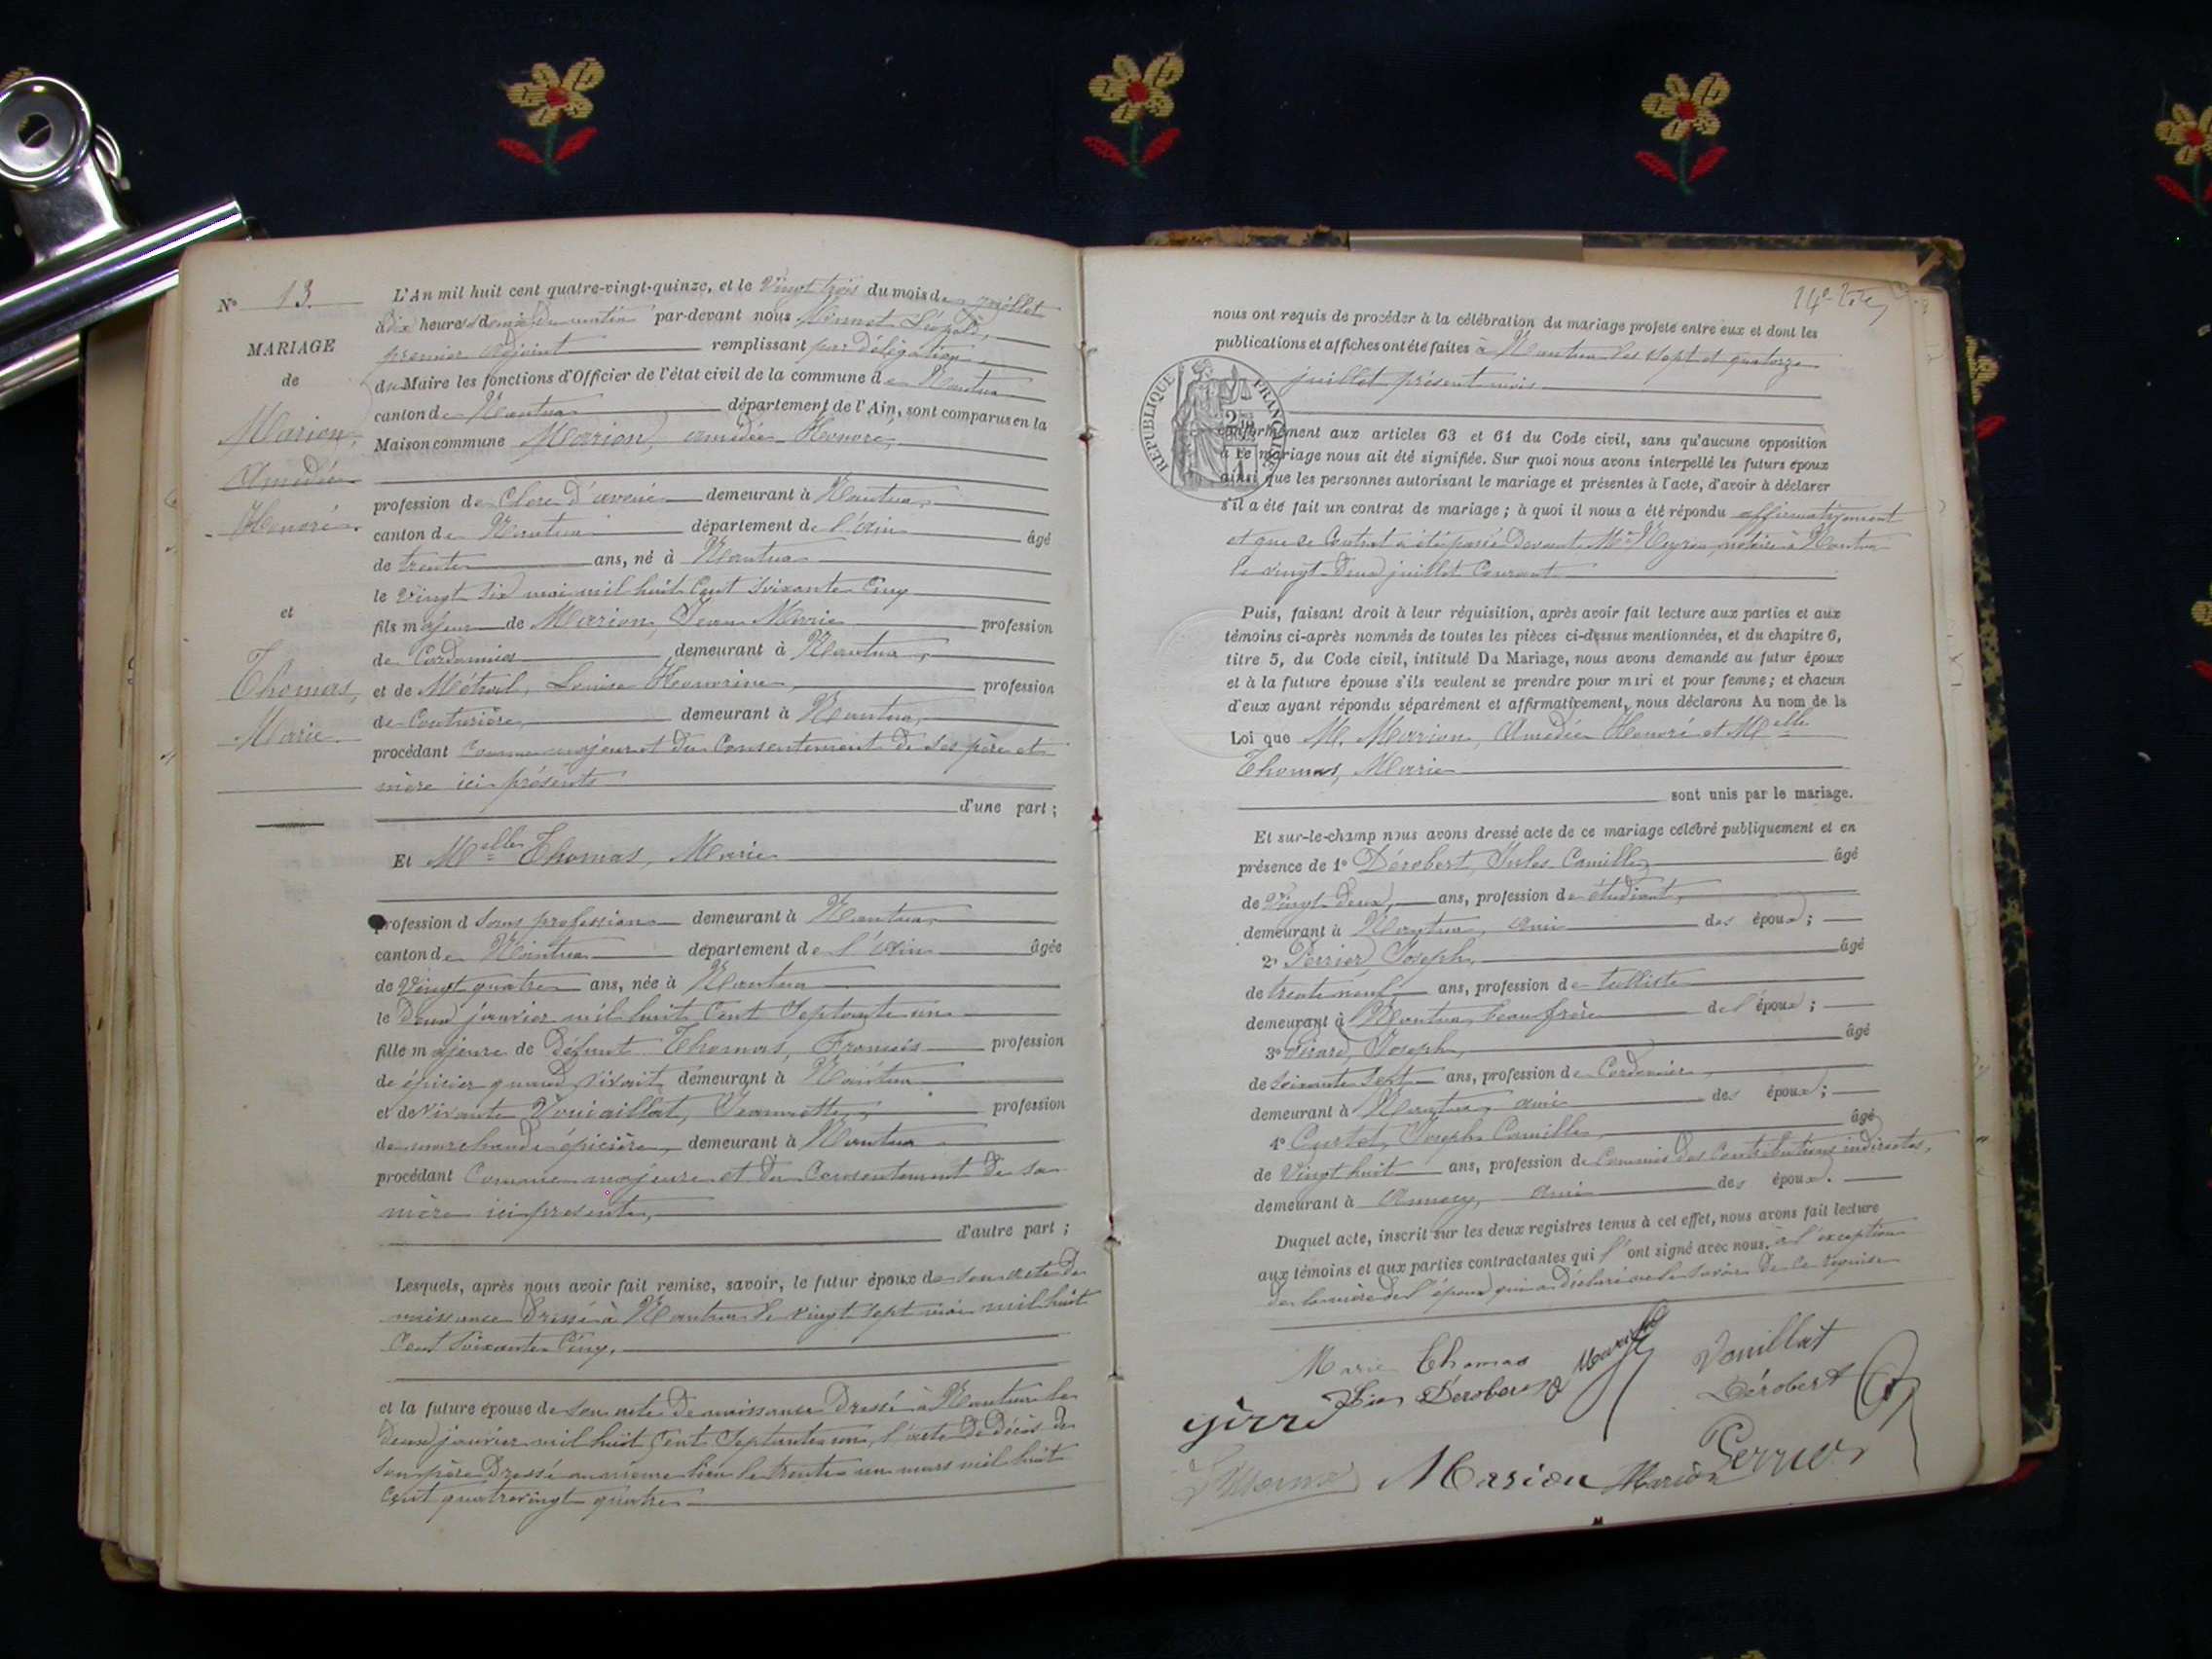 N° 13
MARIAGE
de
Marion,
Amédée
Honoré
et
Thomas,
Marie
L'An mil huit cent quatre-vingt-quinze, et le vingt trois du mois de juillet
à dix heures et demie du matin par-devant nous Léopold,
premier adjoint remplissant par délégation
du Maire les fonctions d'Officier de l'état civil de la commune de Nantua
canton de Nantua département de l'Ain, sont comparus en la
Maison commune Marion, Amédée Honoré,
profession de Clerc d'avoué demeurant à Nantua,
canton de Nantua département de l'Ain âgé
de trente ans, né à Nantua
le vingt six mai mil huit cent soixante cinq
fils majeur de Marion, Jean Marie profession
de Cordonnier demeurant à Nantua,
et de Louise Honorine, profession
de Couturière, demeurant à Nantua,
procédant comme majeur et du consentement de ses père et
mère ici présents
d'une part ;
Et Melle Thomas, Marie
profession d sans profession demeurant à Nantua,
canton de Nantua département de l'Ain âgée
de vingt quatre ans, née à Nantua
le deux janvier mil huit cent septante un
fille majeure de défunt Thomas, François profession
de épicier quand vivait demeurant à Nantua
et de vivante Jeannette, profession
de marchande épicière, demeurant à Nantua
procédant comme majeure et du consentement de sa
mère ici présente,
d'autre part ;
Lesquels, après nous avoir fait remise, savoir, le futur époux de son acte de
naissance dressé à Nantua le vingt sept mai mil huit
cent soixante cinq,
et la future épouse de son acte de naissance dressé à Nantua le
deux janvier mil huit cent septante un, l'acte de décès de
son père dressé au même lieu le trente un mars mil huit
cent quatre vingt quatre
14e
nous ont requis de procéder à la célébration du mariage projeté entre eux et dont les
publications et affiches ont été faites à Nantua les sept et quatorze
juillet présent mois
REPUBLIQUE FRANÇAISE
conformément aux articles 63 et 64 du Code civil, sans qu'aucune opposition
à ce mariage nous ait été signifiée. Sur quoi nous avons interpellé les futurs époux
ainsi que les personnes autorisant le mariage et présentes à l'acte, d'avoir à déclarer
s'il a été fait un contrat de mariage ; à quoi il nous a été répondu affirmativement
et que ce contrat a été passé devant Me notaire à Nantua
le vingt deux juillet courant
Puis, faisant droit à leur réquisition, après avoir fait lecture aux parties et aux
témoins ci-après nommés de toutes les pièces ci-dessus mentionnées, et du chapitre 6,
titre 5, du Code civil, intitulé Du Mariage, nous avons demandé au futur époux
et à la future épouse s'ils veulent se prendre pour mari et pour femme ; et chacun
d'eux ayant répondu séparément et affirmativement, nous déclarons Au nom de la
Loi que M. Marion, Amédée Honoré et Melle
Thomas, Marie
sont unis par le mariage.
Et sur-le-champ nous avons dressé acte de ce mariage célébré publiquement et en
présence de 1° Dérobert, Jules Camille, âgé
de vingt deux, ans, profession de étudiant,
demeurant à Nantua, ami des époux ;
2° Perrier Joseph, âgé
de trente neuf ans, profession de tulliste
demeurant à Nantua, beau frère de l'époux ;
3° Joseph, âgé
de soixante sept ans, profession de Cordonnier,
demeurant à Nantua, ami des époux ;
4° Curtet, Joseph Camille, âgé
de vingt huit ans, profession de Commis des Contributions indirectes,
demeurant à Annecy, ami des époux.
Duquel acte, inscrit sur les deux registres tenus à cet effet, nous avons fait lecture
aux témoins et aux parties contractantes qui l'ont signé avec nous. à l'exception
de la mère de l'époux qui a déclaré ne le savoir de ce requise
Marie Thomas Vouillat
Dérobert Dérobert
Marion Marion Perrier